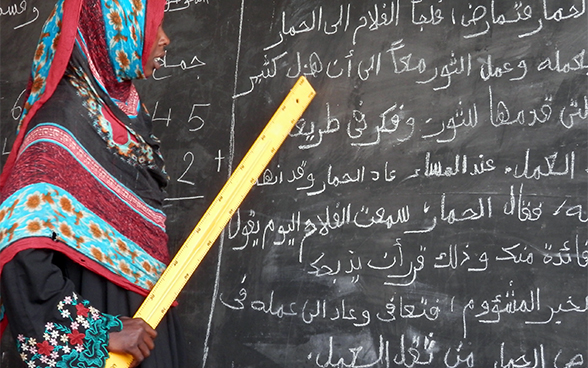 الحمار فتمارض، فلجأ الفلاح الى الحمار
عمله وعمل الثور معاً الى أن هزل كثير
التي قدمها للثور وفكر في طريقة
العمل. عند المساء عاد الحمار وقد انه
فقال الحمار سمعت الفلاح اليوم يقول
فائدة منك وذلك قرر أن يذبحك
الخبر المشؤوم، فتعافى وعاد الى عمله في
ص الحمار من ثقل العمل.
جمع
4 5
2 +